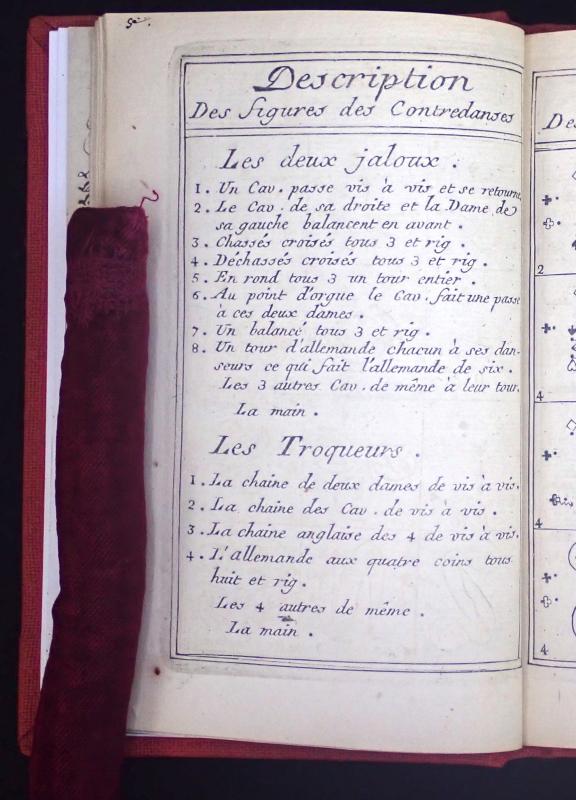 Description
Des figures des Contredanses
Les deux jaloux .
1 . Un Cav . passe vis à vis et se retourne
2 . Le Cav . de sa droite et la Dame de
sa gauche balancent en avant .
3 . Chassés croisés tous 3 et rig .
4 . Déchassés croisés tous 3 et rig .
5 . En rond tous 3 un tour entier .
6 . Au point d'orgue le Cav . fait une passe
à ces deux dames .
7 . Un balancé tous 3 et rig .
8 . Un tour d'allemande chacun à ses dan-
seurs ce qui fait l'allemande de six .
Les 3 autres Cav . de même à leur tour.
La main .
Les Troqueurs .
1 . La chaine de deux dames de vis à vis.
2 . La chaine des Cav . de vis à vis .
3 . La chaine anglaise des 4 de vis à vis.
4 . L'allemande aux quatre coins tous
huit et rig .
Les 4 autres de même .
La main .
Des
2
4
4
4